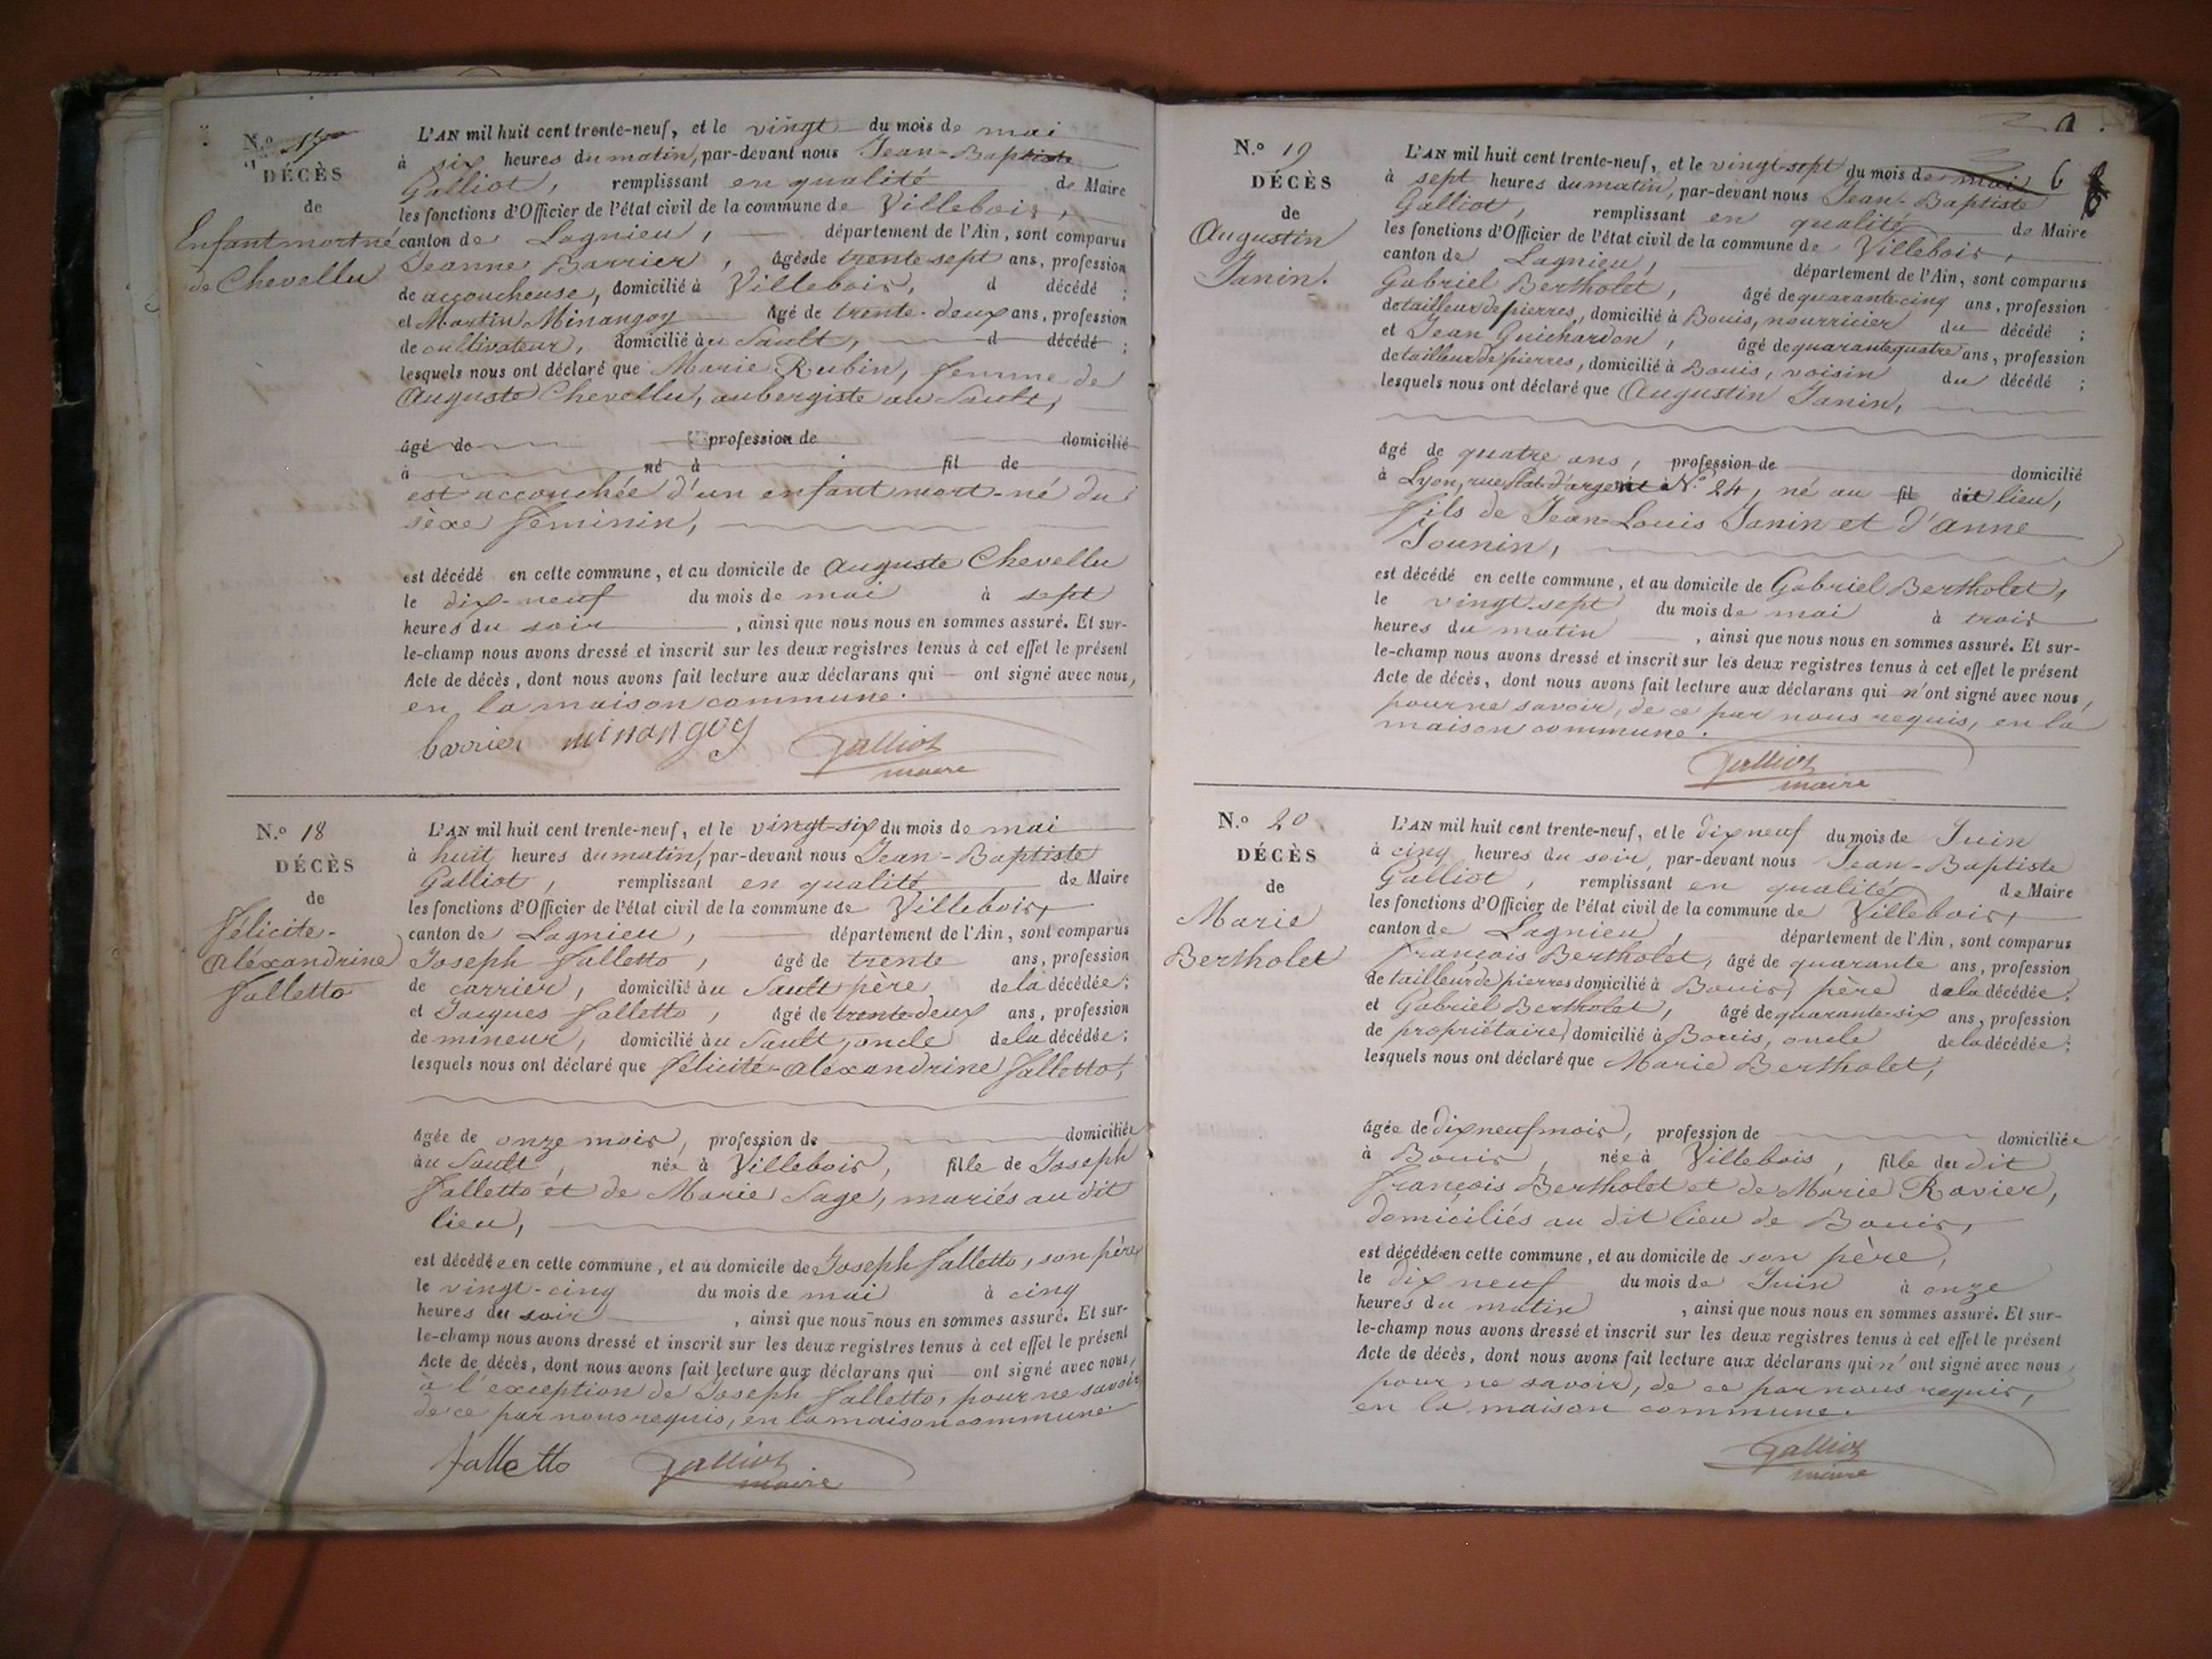 N.º 17
DÉCÈS
de
Enfant mort né
de Chevellu
L'AN mil huit cent trente-neuf, et le vingt du mois de mai
à six heures du matin, par-devant nous Jean-Baptiste
Galliot, remplissant en qualité de Maire
les fonctions d'Officier de l'état civil de la commune de Villebois,
canton de Lagnieu, département de l'Ain, sont comparus
Jeanne Barrier, âgés de trente sept ans, profession
de accoucheuse, domicilié à Villebois, d décédé ;
et Martin Minangoy âgé de trente-deux ans, profession
de cultivateur, domicilié au Sault, d décédé ;
lesquels nous ont déclaré que Marie Rubin, femme de
Auguste Chevellu, aubergiste au Sault,
âgé de profession de domicilié
à né à fil de
est accouchée d'un enfant mort-né du
sèxe féminin,
est décédé en cette commune, et au domicile de Auguste Chevellu
le dix-neuf du mois de mai à sept
heures du soir, ainsi que nous nous en sommes assuré. Et sur-
le-champ nous avons dressé et inscrit sur les deux registres tenus à cet effet le présent
Acte de décès, dont nous avons fait lecture aux déclarans qui ont signé avec nous,
en la maison commune.
barrier minangoy Galliot
maire
N.º 18
DÉCÈS
de
Félicité-
Aléxandrine
Falletto
L'AN mil huit cent trente-neuf, et le vingt-six du mois de mai
à huit heures du matin, par-devant nous Jean-Baptiste
Galliot, remplissant en qualité de Maire
les fonctions d'Officier de l'état civil de la commune de Villebois,
canton de Lagnieu, département de l'Ain, sont comparus
Joseph Falletto, âgé de trente ans, profession
de carrier, domicilié au Sault père de la décédée ;
et Jacques Falletto, âgé de trente deux ans, profession
de mineur, domicilié au Sault, oncle de la décédée ;
lesquels nous ont déclaré que Félicité-Alexandrine Falletto,
âgée de onze mois, profession de domiciliée
au Sault, née à Villebois, fille de Joseph
Falletto et de Marie Sage, mariés au dit
lieu,
est décédée en cette commune, et au domicile de Joseph Falletto, son père
le vingt-cinq du mois de mai à cinq
heures du soir, ainsi que nous nous en sommes assuré. Et sur-
le-champ nous avons dressé et inscrit sur les deux registres tenus à cet effet le présent
Acte de décès, dont nous avons fait lecture aux déclarans qui ont signé avec nous,
à l'exception de Joseph Falletto, pour ne savoir,
de ce par nous requis, en la maison commune.
falletto Galliot
maire
N.º 19
DÉCÈS
de
Augustin
Janin.
L'AN mil huit cent trente-neuf, et le vingt-sept du mois de mai 6
à sept heures du matin, par-devant nous Jean-Baptiste
Galliot, remplissant en qualité de Maire
les fonctions d'Officier de l'état civil de la commune de Villebois,
canton de Lagnieu, département de l'Ain, sont comparus
Gabriel Bertholet, âgé de quarante-cinq ans, profession
de tailleur de pierres, domicilié à Bouis, nourricier du décédé ;
et Jean Guichardon, âgé de quarante quatre ans, profession
de tailleur de pierres, domicilié à Bouis, voisin du décédé ;
lesquels nous ont déclaré que Augustin Janin,
âgé de quatre ans, profession de domicilié
à Lyon, rue Plat-d'argent à N.º 24, né au fil dit lieu,
fils de Jean-Louis Janin et d'anne
Jounin,
est décédé en cette commune, et au domicile de Gabriel Bertholet,
le vingt-sept du mois de mai à trois
heures du matin, ainsi que nous nous en sommes assuré. Et sur-
le-champ nous avons dressé et inscrit sur les deux registres tenus à cet effet le présent
Acte de décès, dont nous avons fait lecture aux déclarans qui n'ont signé avec nous,
pour ne savoir, de ce par nous requis, en la
maison commune.
Galliot
maire
N.º 20
DÉCÈS
de
Marie
Bertholet
L'AN mil huit cent trente-neuf, et le dix neuf du mois de Juin
à cinq heures du soir, par-devant nous Jean-Baptiste
Galliot, remplissant en qualité de Maire
les fonctions d'Officier de l'état civil de la commune de Villebois,
canton de Lagnieu, département de l'Ain, sont comparus
François Bertholet, âgé de quarante ans, profession
de tailleur de pierres domicilié à Bouis, père de la décédée ;
et Gabriel Bertholet, âgé de quarante-six ans, profession
de propriétaire, domicilié à Bouis, oncle de la décédée ;
lesquels nous ont déclaré que Marie Bertholet,
âgée de dix neuf mois, profession de domiciliée
à Bouis, née à Villebois, fille du dit
François Bertholet et de Marie Ravier,
domiciliés au dit lieu de Bouis,
est décédée en cette commune, et au domicile de son père,
le dix neuf du mois de Juin à onze
heures du matin, ainsi que nous nous en sommes assuré. Et sur-
le-champ nous avons dressé et inscrit sur les deux registres tenus à cet effet le présent
Acte de décès, dont nous avons fait lecture aux déclarans qui n'ont signé avec nous
pour ne savoir, de ce par nous requis,
en la maison commune.
Galliot
maire